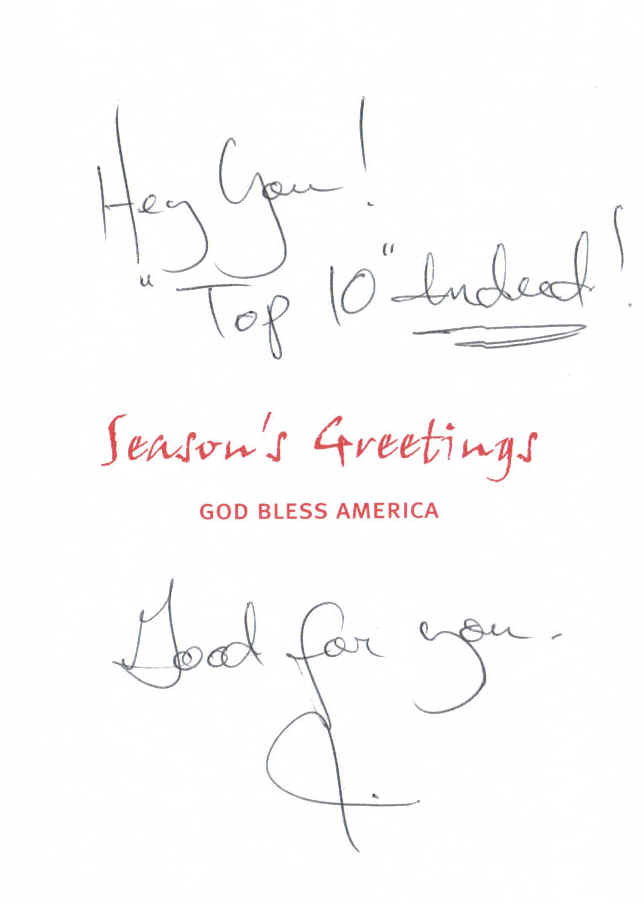 Hey You!
"Top 10" Indeed!
Season's Greetings
GOD BLESS AMERICA
Good for you.